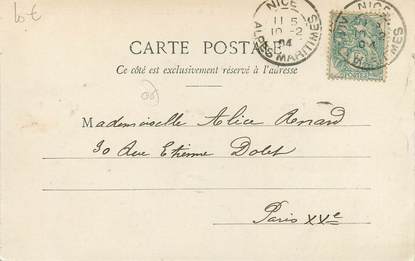 10 €
NICE
11 5
10 -2
04
ALPES MARITIMES
NICE
04
CARTE POSTALE
Ce côté est exclusivement réservé à l'adresse
(06)
Mademoiselle Alice Renard
30 Rue Etienne Dolet
Paris XXe